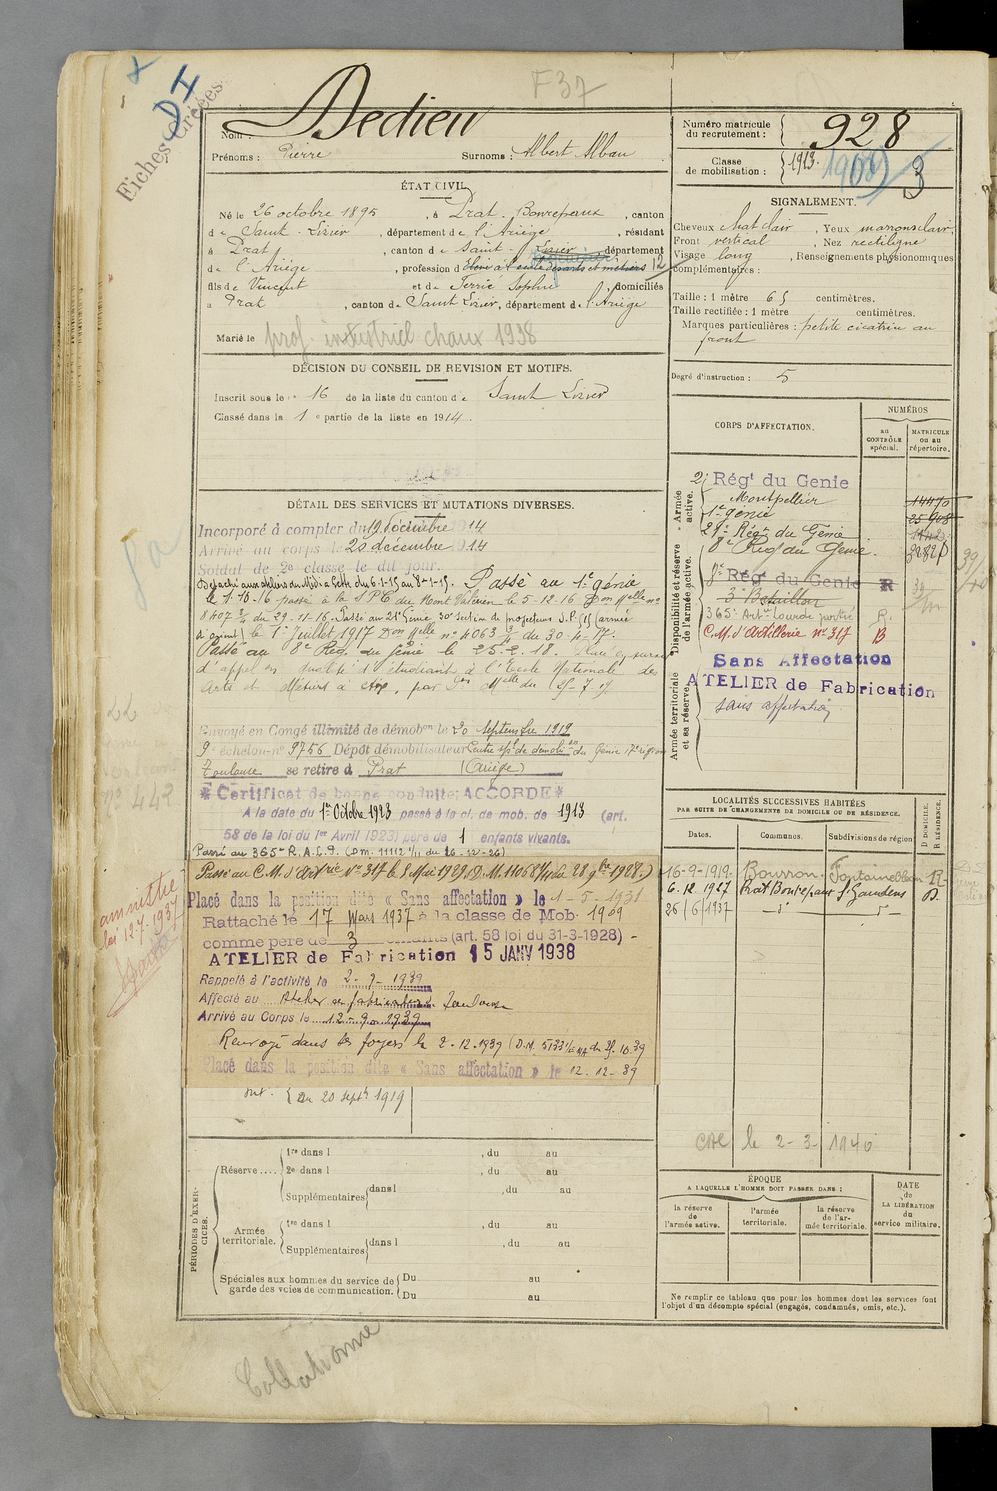 F 37
DI
Fiches Créées
Nom : Dedieu
Prénoms : Pierre Surnoms : Albert Alban
Numéro matricule du recrutement : 928
Classe de mobilisation : 1913. 1909 3
ÉTAT CIVIL
Né le 26 octobre 1895, à Prat-Bonrepaux, canton
de Saint-Lizier, département de l'Ariège, résidant
à Prat, canton de Saint-Lizier, département
de l'Ariège, profession d'Elève à l'école des arts et métiers 12
fils de Vincent et de Terrié Sophie, domiciliés
à Prat, canton de Saint Lizier, département de l'Ariège
Marié le
prof. industriel chaux 1938
SIGNALEMENT.
Cheveux chat clair, Yeux marrons clair,
Front vertical, Nez rectiligne
Visage long, Renseignements physionomiques
complémentaires :
Taille : 1 mètre 65 centimètres.
Taille rectifiée : 1 mètre centimètres.
Marques particulières : petite cicatrice au
front
Degré d'instruction : 5
DÉCISION DU CONSEIL DE REVISION ET MOTIFS.
Inscrit sous le n° 16 de la liste du canton de Saint Lizier
Classé dans la 1e partie de la liste en 1914.
CORPS D'AFFECTATION.
NUMÉROS
au CONTRÔLE spécial.
MATRICULE ou au répertoire.
Armée active.
2e Régt du Genie
Montpellier 14470
1er génie 25908
21e Régt du Génie
8e Reg du Genie.
Disponibilité et réserve de l'armée active.
8e Régt du Genie R
3e Bataillon
365e Artie Lourde portée R.
C.M. d'Artillerie n° 317 B
Sans Affectation
ATELIER de Fabrication
sans affectation
Armée territoriale et sa réserve.
DÉTAIL DES SERVICES ET MUTATIONS DIVERSES.
Incorporé à compter du 19 décembre 1914
Arrivé au corps le 20 décembre 1914
Soldat de 2e classe le dit jour.
Détaché aux ateliers du Midi à Cette du 6-1-15 au 8-1-15. Passé au 1er génie
le 1-10-16 passé à la S.P.E. du Mont Valérien le 5-12-16 Don Melle n°
8407 3/4 du 29-11-16. Passé au 21e Génie, 30e section de projecteurs S.P. (armée
d'orient) le 1er Juillet 1917 Don Melle n° 4063 3/4 du 30-4-17.
Passé au 8e Reg. du Génie le 25-2-18. Placé en sursis
d'appel en qualité d'étudiant à l'Ecole Nationale des
Arts et Métiers à Aix, par
Envoyé en Congé illimité de démobon le 20 septembre 1919
9e échelon n° 9756 Dépôt démobilisateur Centre spl de démobon du Génie 17e région
Toulouse se retire à Prat (Ariège)
Certificat de bonne conduite: ACCORDE
A la date du 1er Octobre 1923 passé à la cl. de mob. de 1913 (art.
58 de la loi du 1er Avril 1923) père de 1 enfants vivants.
Passé au 365e R.A.L.P. (Dm. 11112 1/11 du 26-12-26)
Passé au C.M. d'Artrie N° 317 le 1 Mai 1929 (D.M. 11068 1/11 du 28 9bre 1928.)
Placé dans la position dite « Sans affectation » le 1-5-1931
Rattaché le 17 Mars 1937 à la classe de Mob. 1909
comme père de 3 enfants (art. 58 loi du 31-3-1928)
ATELIER de Fabrication 15 JANV 1938
Rappelé à l'activité le 2-9-1939
Affecté au Atelier de fabrication Toulouse
Arrivé au Corps le 12-9-1939
Renvoyé dans ses foyers le 2-12-1939
Placé dans la position dite « Sans affectation » le 12-12-39
au 20 septe 1919
amnistie
loi 12-7-1937
LOCALITÉS SUCCESSIVES HABITÉES
PAR SUITE DE CHANGEMENTS DE DOMICILE OU DE RÉSIDENCE.
Dates. Communes. Subdivisions de région. D DOMICILE. R RÉSIDENCE.
16-9-1919 Bourron Fontainebleau R
6.12.1927 Prat Bonrepaux St Gaudens D.
26/6/1937 -d°-
le 2-3-1940
PÉRIODES D'EXERCICES.
Réserve....
1re dans l , du au
2e dans l , du au
Supplémentaires dans l , du au
Armée territoriale.
1re dans l , du au
Supplémentaires dans l , du au
Spéciales aux hommes du service de garde des voies de communication.
Du au
Du au
ÉPOQUE
A LAQUELLE L'HOMME DOIT PASSER DANS :
la réserve de l'armée active.
l'armée territoriale.
la réserve de l'armée territoriale.
DATE de LA LIBÉRATION du service militaire.
Ne remplir ce tableau que pour les hommes dont les services font
l'objet d'un décompte spécial (engagés, condamnés, omis, etc.).